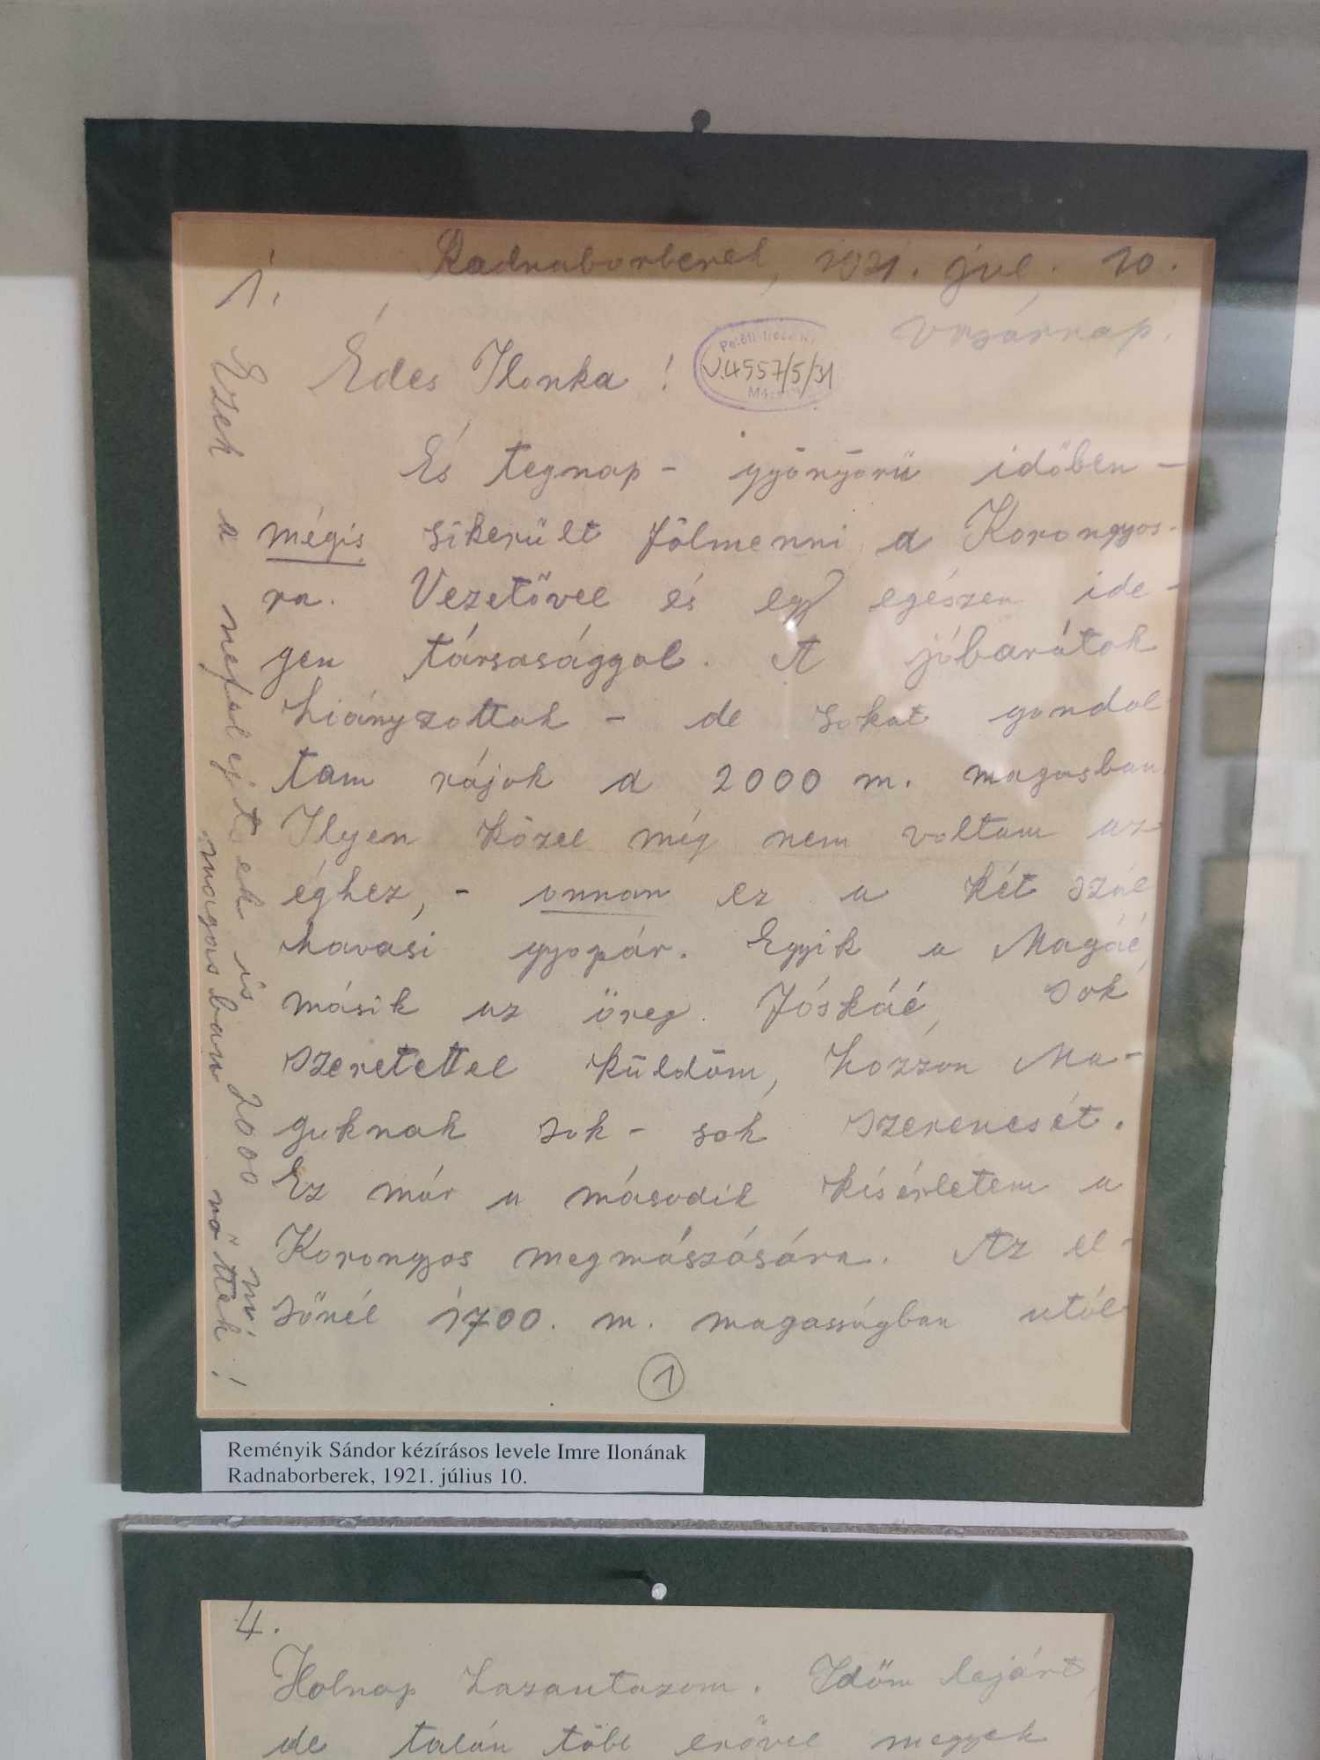 1.
Radnaborberek, 1921. jul. 10.
Vasárnap.
Petőfi Irodalmi
V.4557/5/31
Múzeum
Édes Ilonka!
És tegnap - gyönyörü időben -
mégis sikerült fölmenni a Korongyos-
ra. Vezetővel és egy egészen ide-
gen társasággal. A jóbarátok
hiányzottak - de sokat gondol
tam rájok a 2000 m. magasban
Ilyen közel még nem voltam az
éghez, - onnan ez a két szál
havasi gyopár. Egyik a Magáé,
másik az öreg Jóskáé, sok
szeretettel küldöm, hozzon Ma-
guknak sok - sok szerencsét.
Ez már a második kisérletem a
Korongyos megmászására. Az el-
sőnél 1700. m. magasságban utól
1
Ezek a nefelejtsek is 2000 m.
magasban nőttek!
Reményik Sándor kézírásos levele Imre Ilonának
Radnaborberek, 1921. július 10.
4.
Holnap hazautazom. Időm lejárt,
de talán több erővel megyek